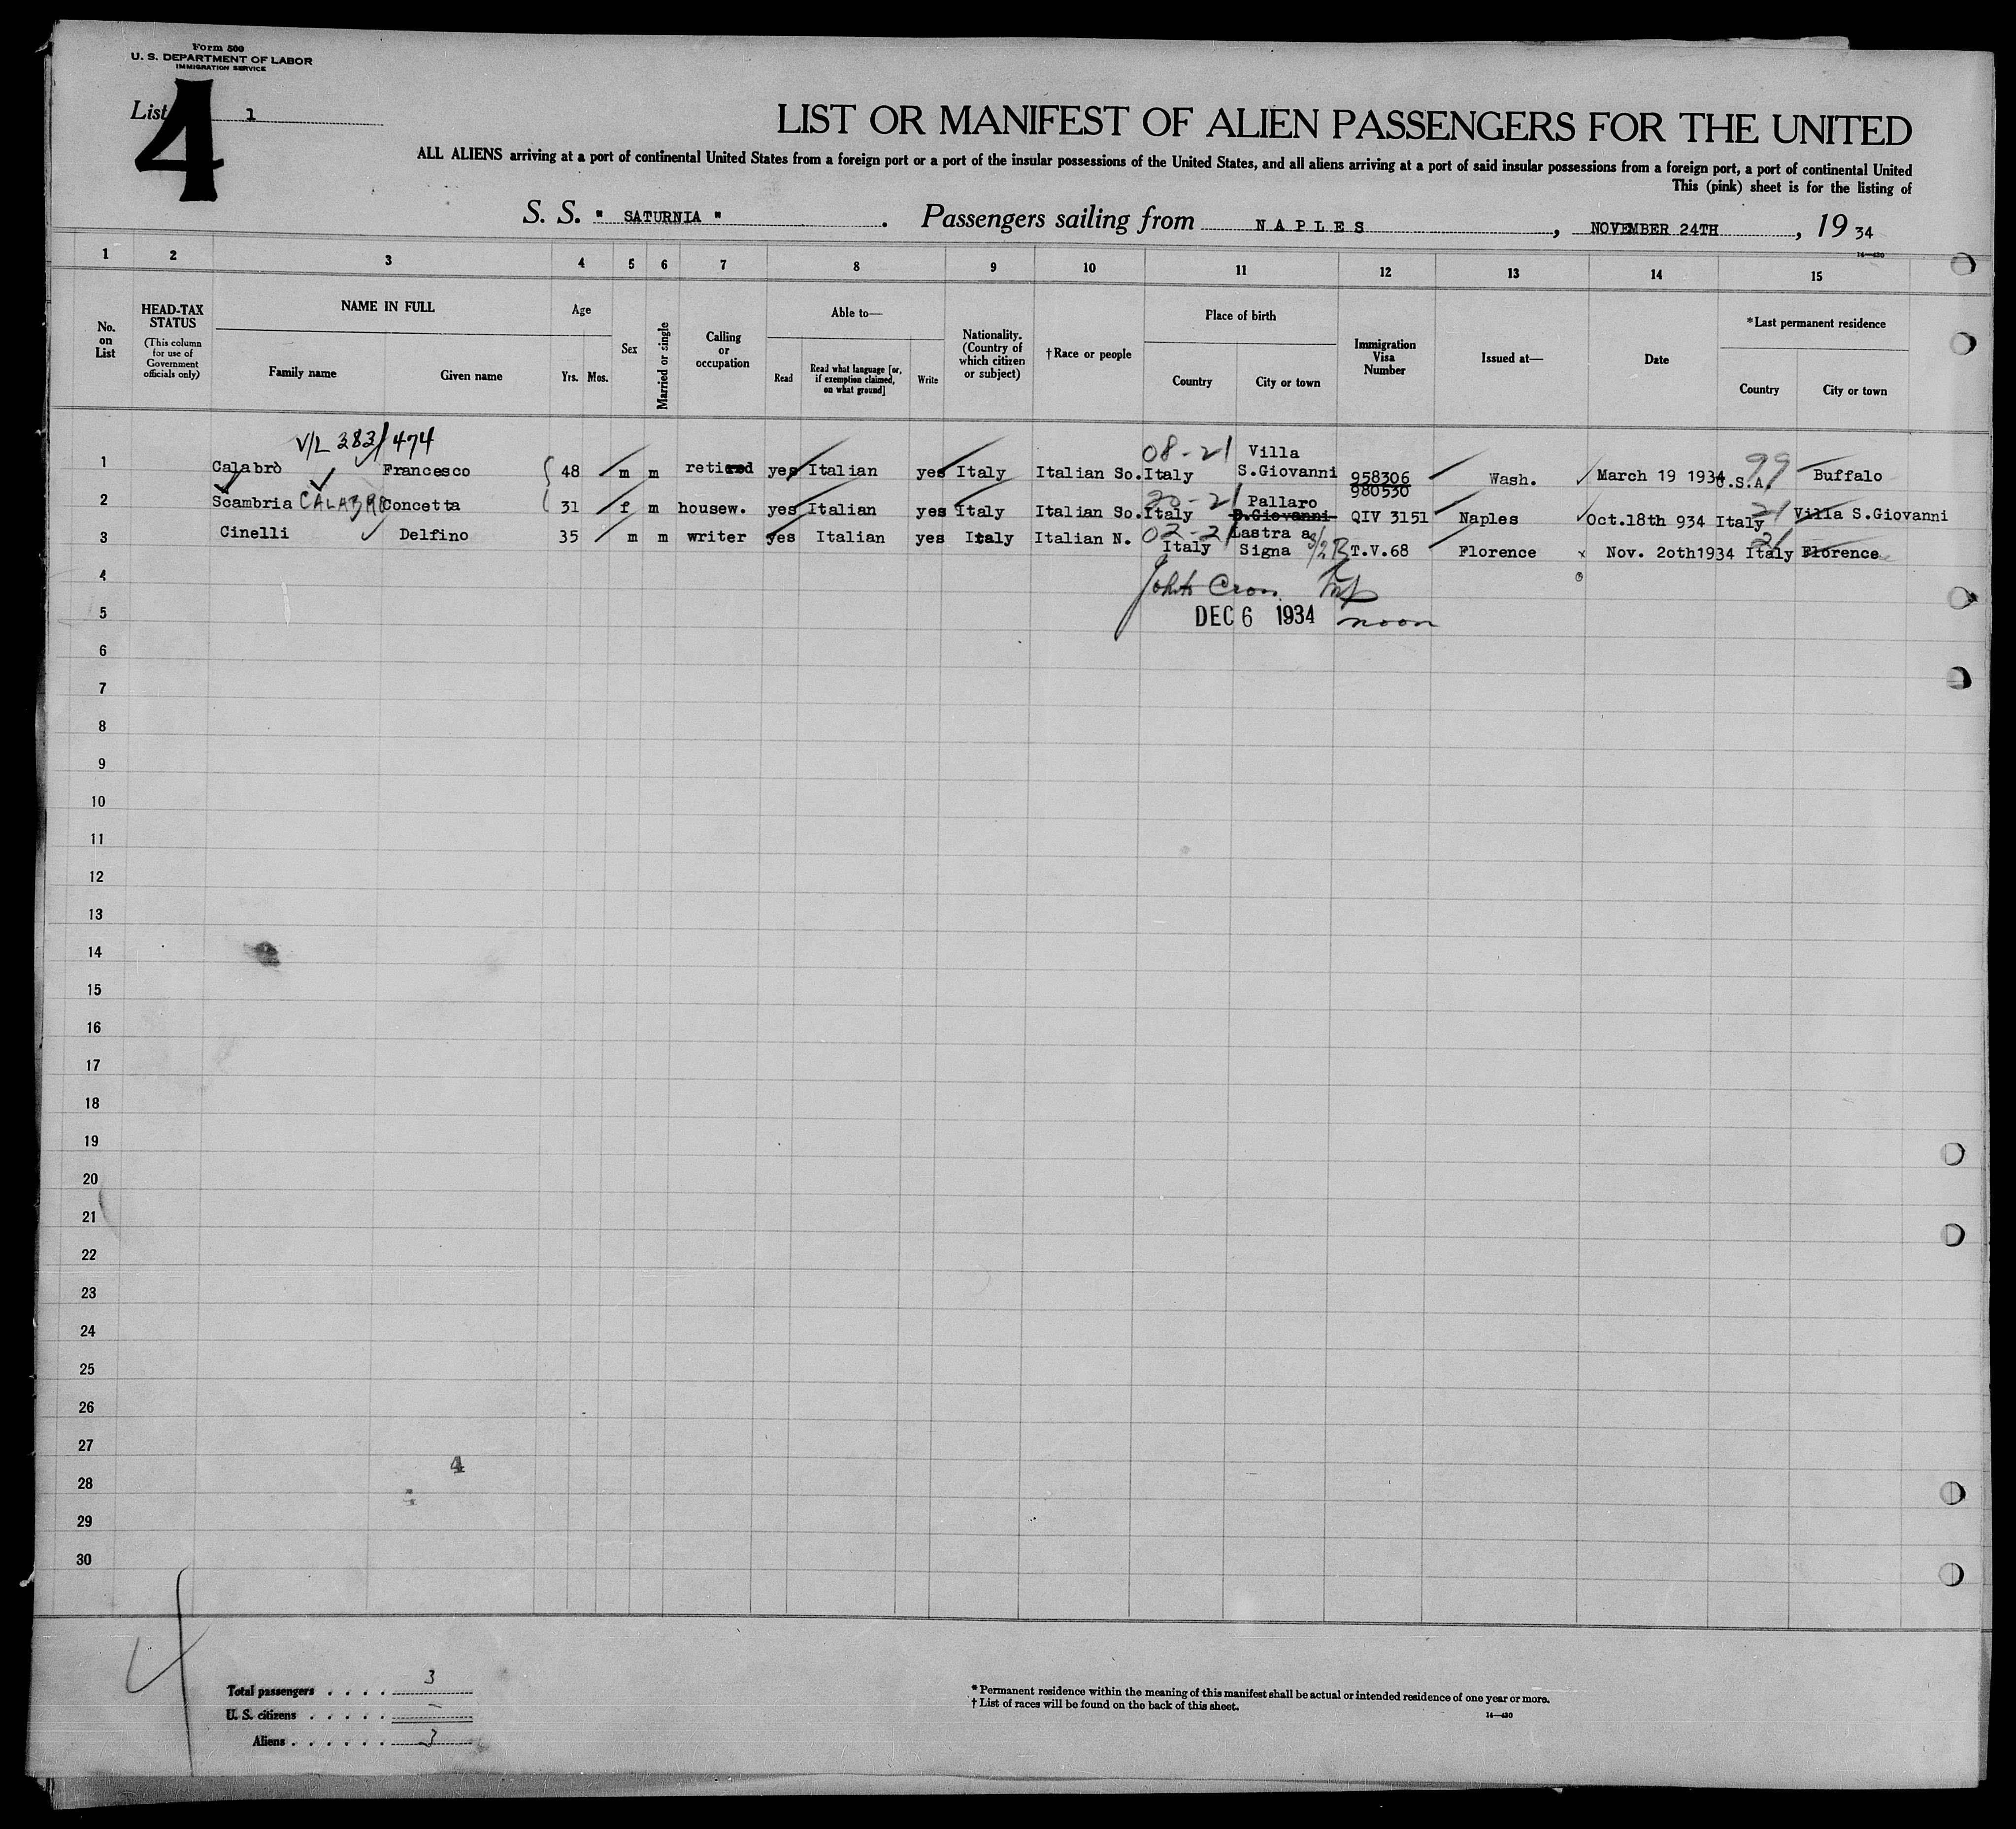 Form 500
U. S. DEPARTMENT OF LABOR
IMMIGRATION SERVICE
List 1
4
LIST OR MANIFEST OF ALIEN PASSENGERS FOR THE UNITED
ALL ALIENS arriving at a port of continental United States from a foreign port or a port of the insular possessions of the United States, and all aliens arriving at a port of said insular possessions from a foreign port, a port of continental United
This (pink) sheet is for the listing of
S. S. " SATURNIA ". Passengers sailing from NAPLES, NOVEMBER 24TH, 19 34
14—430
1 2 3 4 5 6 7 8 9 10 11 12 13 14 15
No. on List
HEAD-TAX STATUS
(This column for use of Government officials only)
NAME IN FULL
Family name Given name
Age
Yrs. Mos.
Sex
Married or single
Calling or occupation
Able to—
Read
Read what language [or, if exemption claimed, on what ground]
Write
Nationality. (Country of which citizen or subject)
†Race or people
Place of birth
Country City or town
Immigration Visa Number
Issued at—
Date
*Last permanent residence
Country City or town
V/L 383/474
08-21 Villa 99
1 Calabrò Francesco 48 m m retired yes Italian yes Italy Italian So. Italy S.Giovanni 958306 Wash. March 19 1934 U.S.A. Buffalo
980530
20-21 Pallaro 21
2 Scambria CALABRO Concetta 31 f m housew. yes Italian yes Italy Italian So. Italy S.Giovanni QIV 3151 Naples Oct.18th 934 Italy Villa S.Giovanni
02-21 Lastra a 21
3 Cinelli Delfino 35 m m writer yes Italian yes Italy Italian N. Italy Signa T.V.68 Florence x Nov. 2oth1934 Italy Florence
4
5 DEC 6 1934 noon
6
7
8
9
10
11
12
13
14
15
16
17
18
19
20
21
22
23
24
25
26
27
4
28
29
30
4
Total passengers . . . . 3
U. S. citizens . . . . . —
Aliens . . . . . . 3
* Permanent residence within the meaning of this manifest shall be actual or intended residence of one year or more.
† List of races will be found on the back of this sheet.
14—430